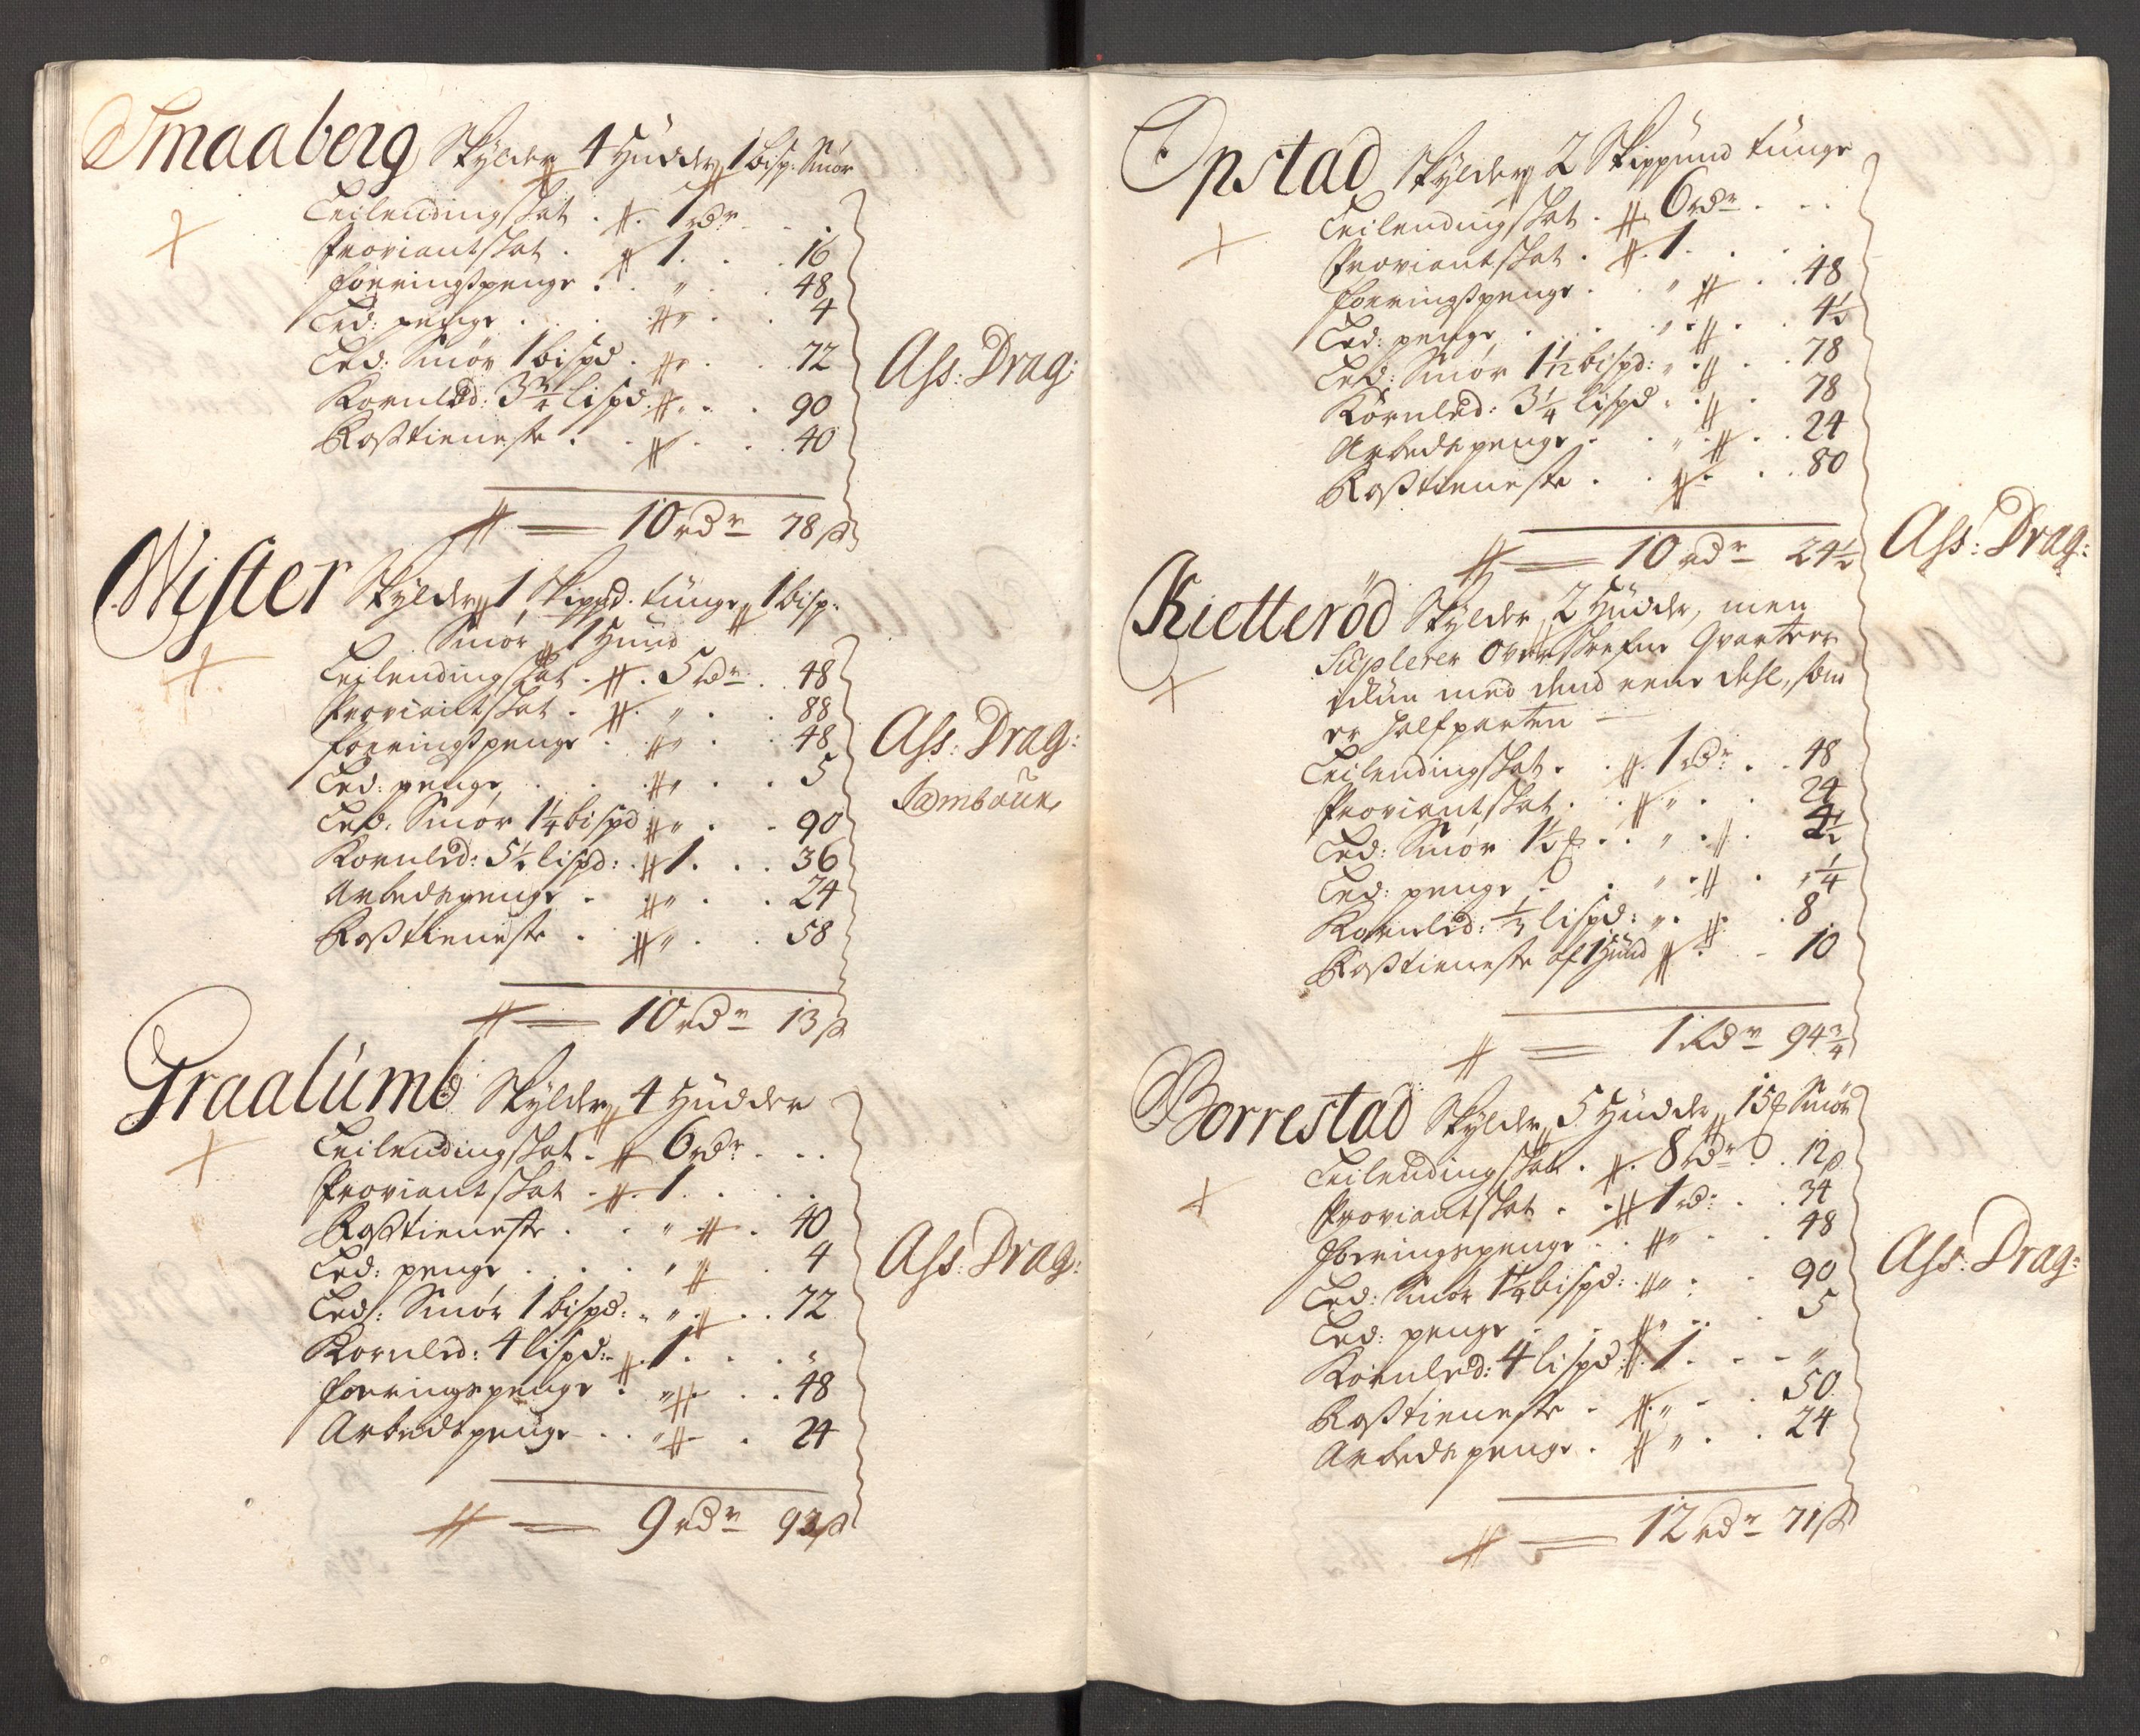 Smaaberg Skylder 4 Hudder 1 bisp: Smør
Leilendingskat . # . 7 rdr . . .
Proviantskat . # 1 . . . 16
foeringspenge . . " . . 48
Led: penge . . . # " . . 4
Led: Smør 1 bispd . # " . . 72
Kornled: 3 3/4 lispd # " . . 90
Rosstieneste . . # . . . 40
# = 10 rdr 78 s
Ass: Drag:
Wister Skylder 1 Skippd. tunge, 1 bisp:
Smør, 1 Hund
Leilendingskat . # . 5 rdr . 48
Proviantskat . # . " . . 88
foeringspenge . # " . . 48
Led: penge, . . . # " . . . 5
Led: Smør 1 1/4 bispd # " . . 90
Kornled: 5 1/2 lispd: . # 1 . . . 36
Arbedspenge . . # " . . . 24
Rosstieneste . . # " . . . 58
# = 10 rdr 13 s
Ass: Drag:
Tambour
Graalumb Skylder 4 Hudder
Leilendingskat . # 6 rdr . . .
Proviant skat . # . 1 . . . .
Rosstieneste . . " # . 40
Led: penge . . . . " # . 4
Led: Smør 1 bispd: . " # . . 72
Kornled: 4 lispd: # . 1 . . . "
foeringspenge . " # . . . 48
Arbedspenge . . " # . . 24
# = 9 rdr 93 s
Ass: Drag:
Opstad Skylder 2 Skippund tunge
Leilendingskat . # 6 rdr . . .
Proviantskat . # . 1 . . . .
foeringspenge . . " # . . 48
Led: penge . . . . " # . . 4 1/2
Led: Smør 1 1/12 bispd: " # . . 78
Kornled: 3 1/4 lispd . " # . 78
Arbedspenge . . " . # . . 24
Rosstieneste . . # " . . . 80
# = 10 rdr 24 1/2
Ass: Drag:
Kietterød Skylder 2 Hudder, men
Suplerer Ofver Skrefne Qvarteer
ickun med dend eene deel, som
er halfparten —
Leilendingskat . . # . 1 rdr . . 48
Proviantskat . . # " . . 24
Led: Smør 1 1/2 . . " . # . 4 1/2
Led: penge . . " . # . " 1/4
Kornled: 1/3 lispd: " . # . . 8
Rosstieneste af 1 Hund # . . 10
# = 1 Rdr 94 3/4
Borrestad Skylder 5 Hudder, 15 Smør
Leilendingskat . # . 8 rdr . . 12 s
Proviantskat . . # 1 rd: . . 34
foeringspenge . . # " . . 48
Led: Smør 1 1/4 bispd: . # " . . 90
Led: penge . . # " . . . 5
Kornled: 4 lispd: # 1 . . . "
Rosstieneste . # " . . 50
Arbedspenge . # " . . . 24
# = 12 rdr 71 s
Ass: Drag: